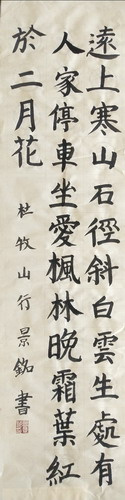 遠上寒山石徑斜白雲生處有
人家停車坐愛楓林晚霜葉紅
於二月花
杜牧山行 景銘書